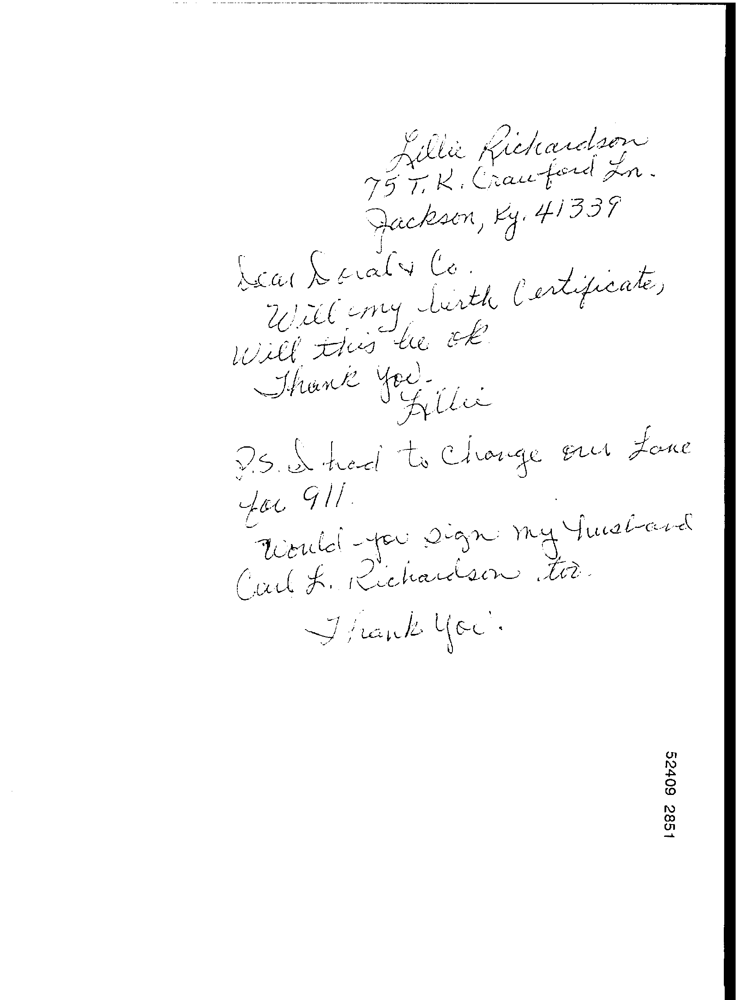 Lillie Richardson
75 T. K. Crawford Ln.
Jackson, Ky. 41339
Dear Doral & Co.
Will my birth Certificate,
Will this be ok.
Thank You.
Lillie
P.S. I had to change our Lane
for 911.
Would you sign my husband
Carl L. Richardson too.
Thank You.
52409 2851